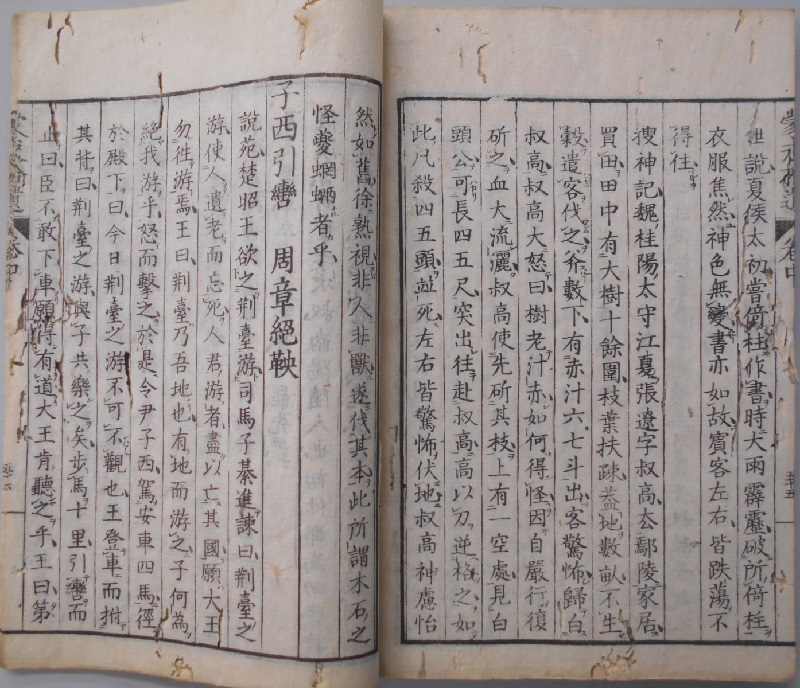 世説夏侯太初嘗倚柱作書時大雨霹靂破所倚柱
衣服焦然神色無變書亦如故賓客左右皆跌蕩不
得住
搜神記魏桂陽太守江夏張遼字叔高去鄢陵家居
買田田中有大樹十餘圍枝葉扶疎蓋地數畝不生
穀遣客伐之斧數下有赤汁六七斗出客驚怖歸白
叔高叔高大怒曰樹老汁赤如何得怪因自嚴行復
斫之血大流灑叔高使先斫其枝上有一空處見白
頭公可長四五尺突出往赴叔高高以刀逆格之如
此凡殺四五頭並死左右皆驚怖伏地叔高神慮怡
然如舊徐熟視非人非獸遂伐其本此所謂木石之
怪夔蝄蜽者乎
子西引轡 周章絕鞅
說苑楚昭王欲之荊臺游司馬子綦進諫曰荊臺之
游使人遺老而忘死人君游者盡以亡其國願大王
勿往游焉王曰荊臺乃吾地也有地而游之子何為
絕我游乎怒而擊之於是令尹子西駕安車四馬徑
於殿下曰今日荊臺之游不可不觀也王登車而拊
其背曰荊臺之游與子共樂之矣步馬十里引轡而
止曰臣不敢下車願得有道大王肯聽之乎王曰第
卷中